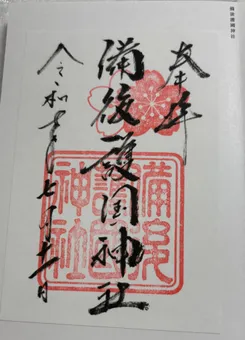 備後護国神社
奉拝
備後護国神社
令和七年七月十一日
備後護國神社